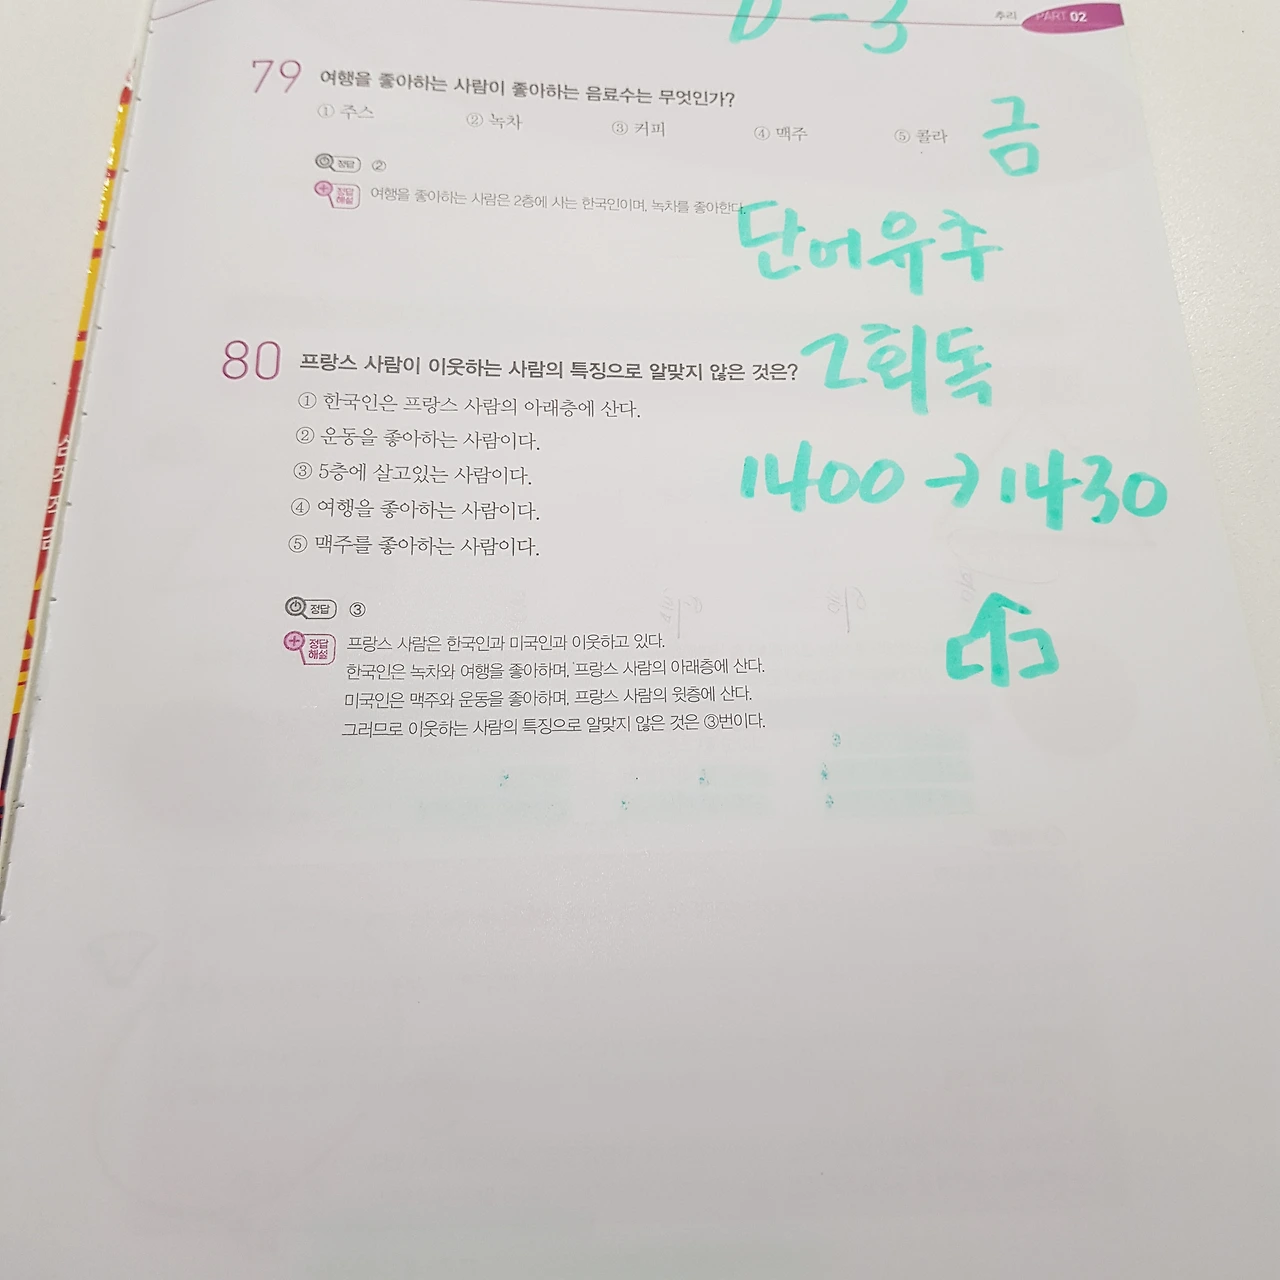 D-3
추리 PART 02
금
79 여행을 좋아하는 사람이 좋아하는 음료수는 무엇인가?
① 주스 ② 녹차 ③ 커피 ④ 맥주 ⑤ 콜라
정답 ②
정답해설 여행을 좋아하는 사람은 2층에 사는 한국인이며, 녹차를 좋아한다.
단어유추
2회독
1400 → 1430
80 프랑스 사람이 이웃하는 사람의 특징으로 알맞지 않은 것은?
① 한국인은 프랑스 사람의 아래층에 산다.
② 운동을 좋아하는 사람이다.
③ 5층에 살고있는 사람이다.
④ 여행을 좋아하는 사람이다.
⑤ 맥주를 좋아하는 사람이다.
정답 ③
정답해설 프랑스 사람은 한국인과 미국인과 이웃하고 있다.
한국인은 녹차와 여행을 좋아하며, 프랑스 사람의 아래층에 산다.
미국인은 맥주와 운동을 좋아하며, 프랑스 사람의 윗층에 산다.
그러므로 이웃하는 사람의 특징으로 알맞지 않은 것은 ③번이다.